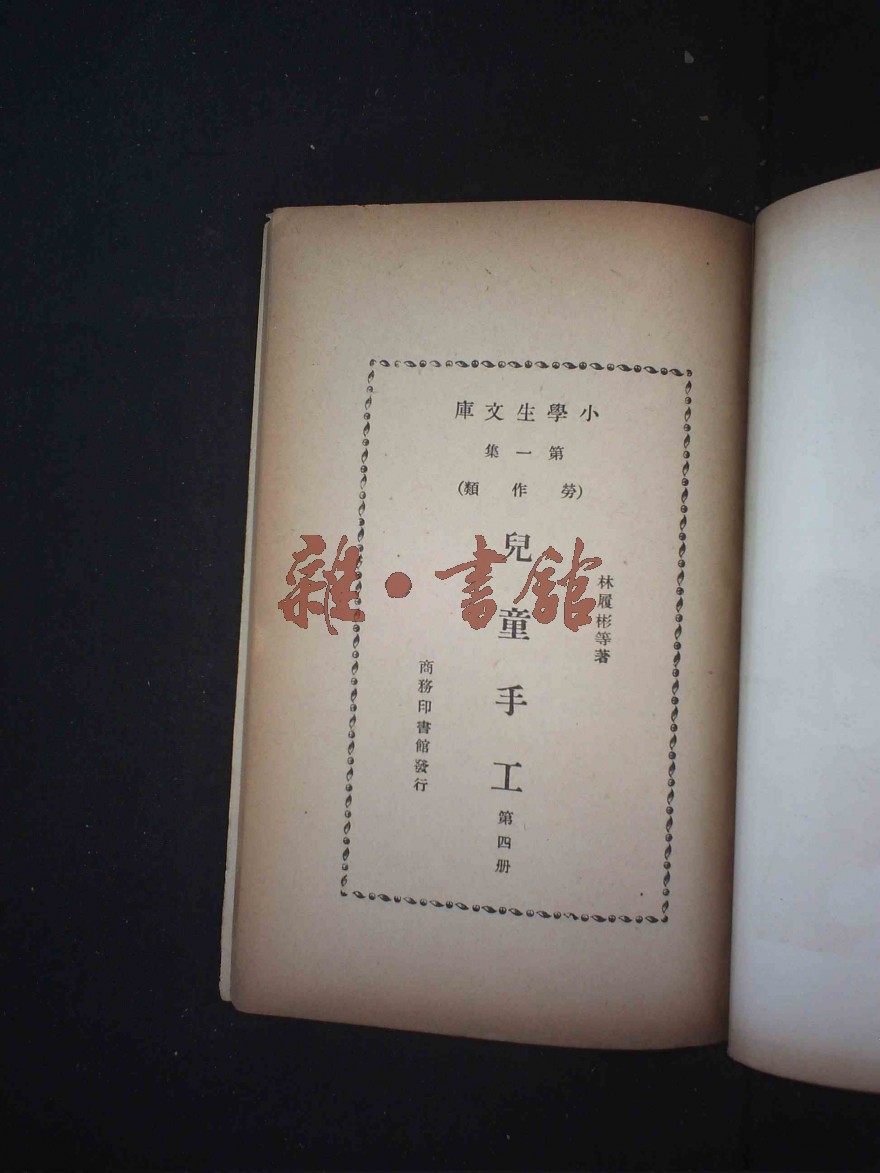 小學生文庫
第一集
(勞作類)
林履彬等著
兒童手工 第四册
商務印書館發行
雜·書館